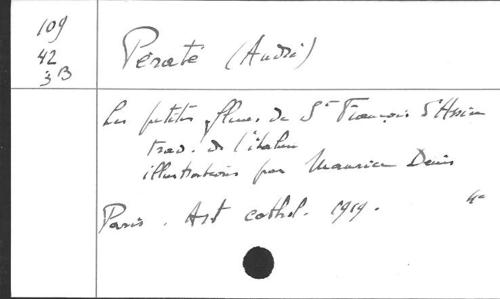 109
42
3B
Pératé (André)
Les petites fleurs de St François d'Assise
trad. de l'italien
illustrations par Maurice Denis
Paris. Art cathol. 1919. 4°